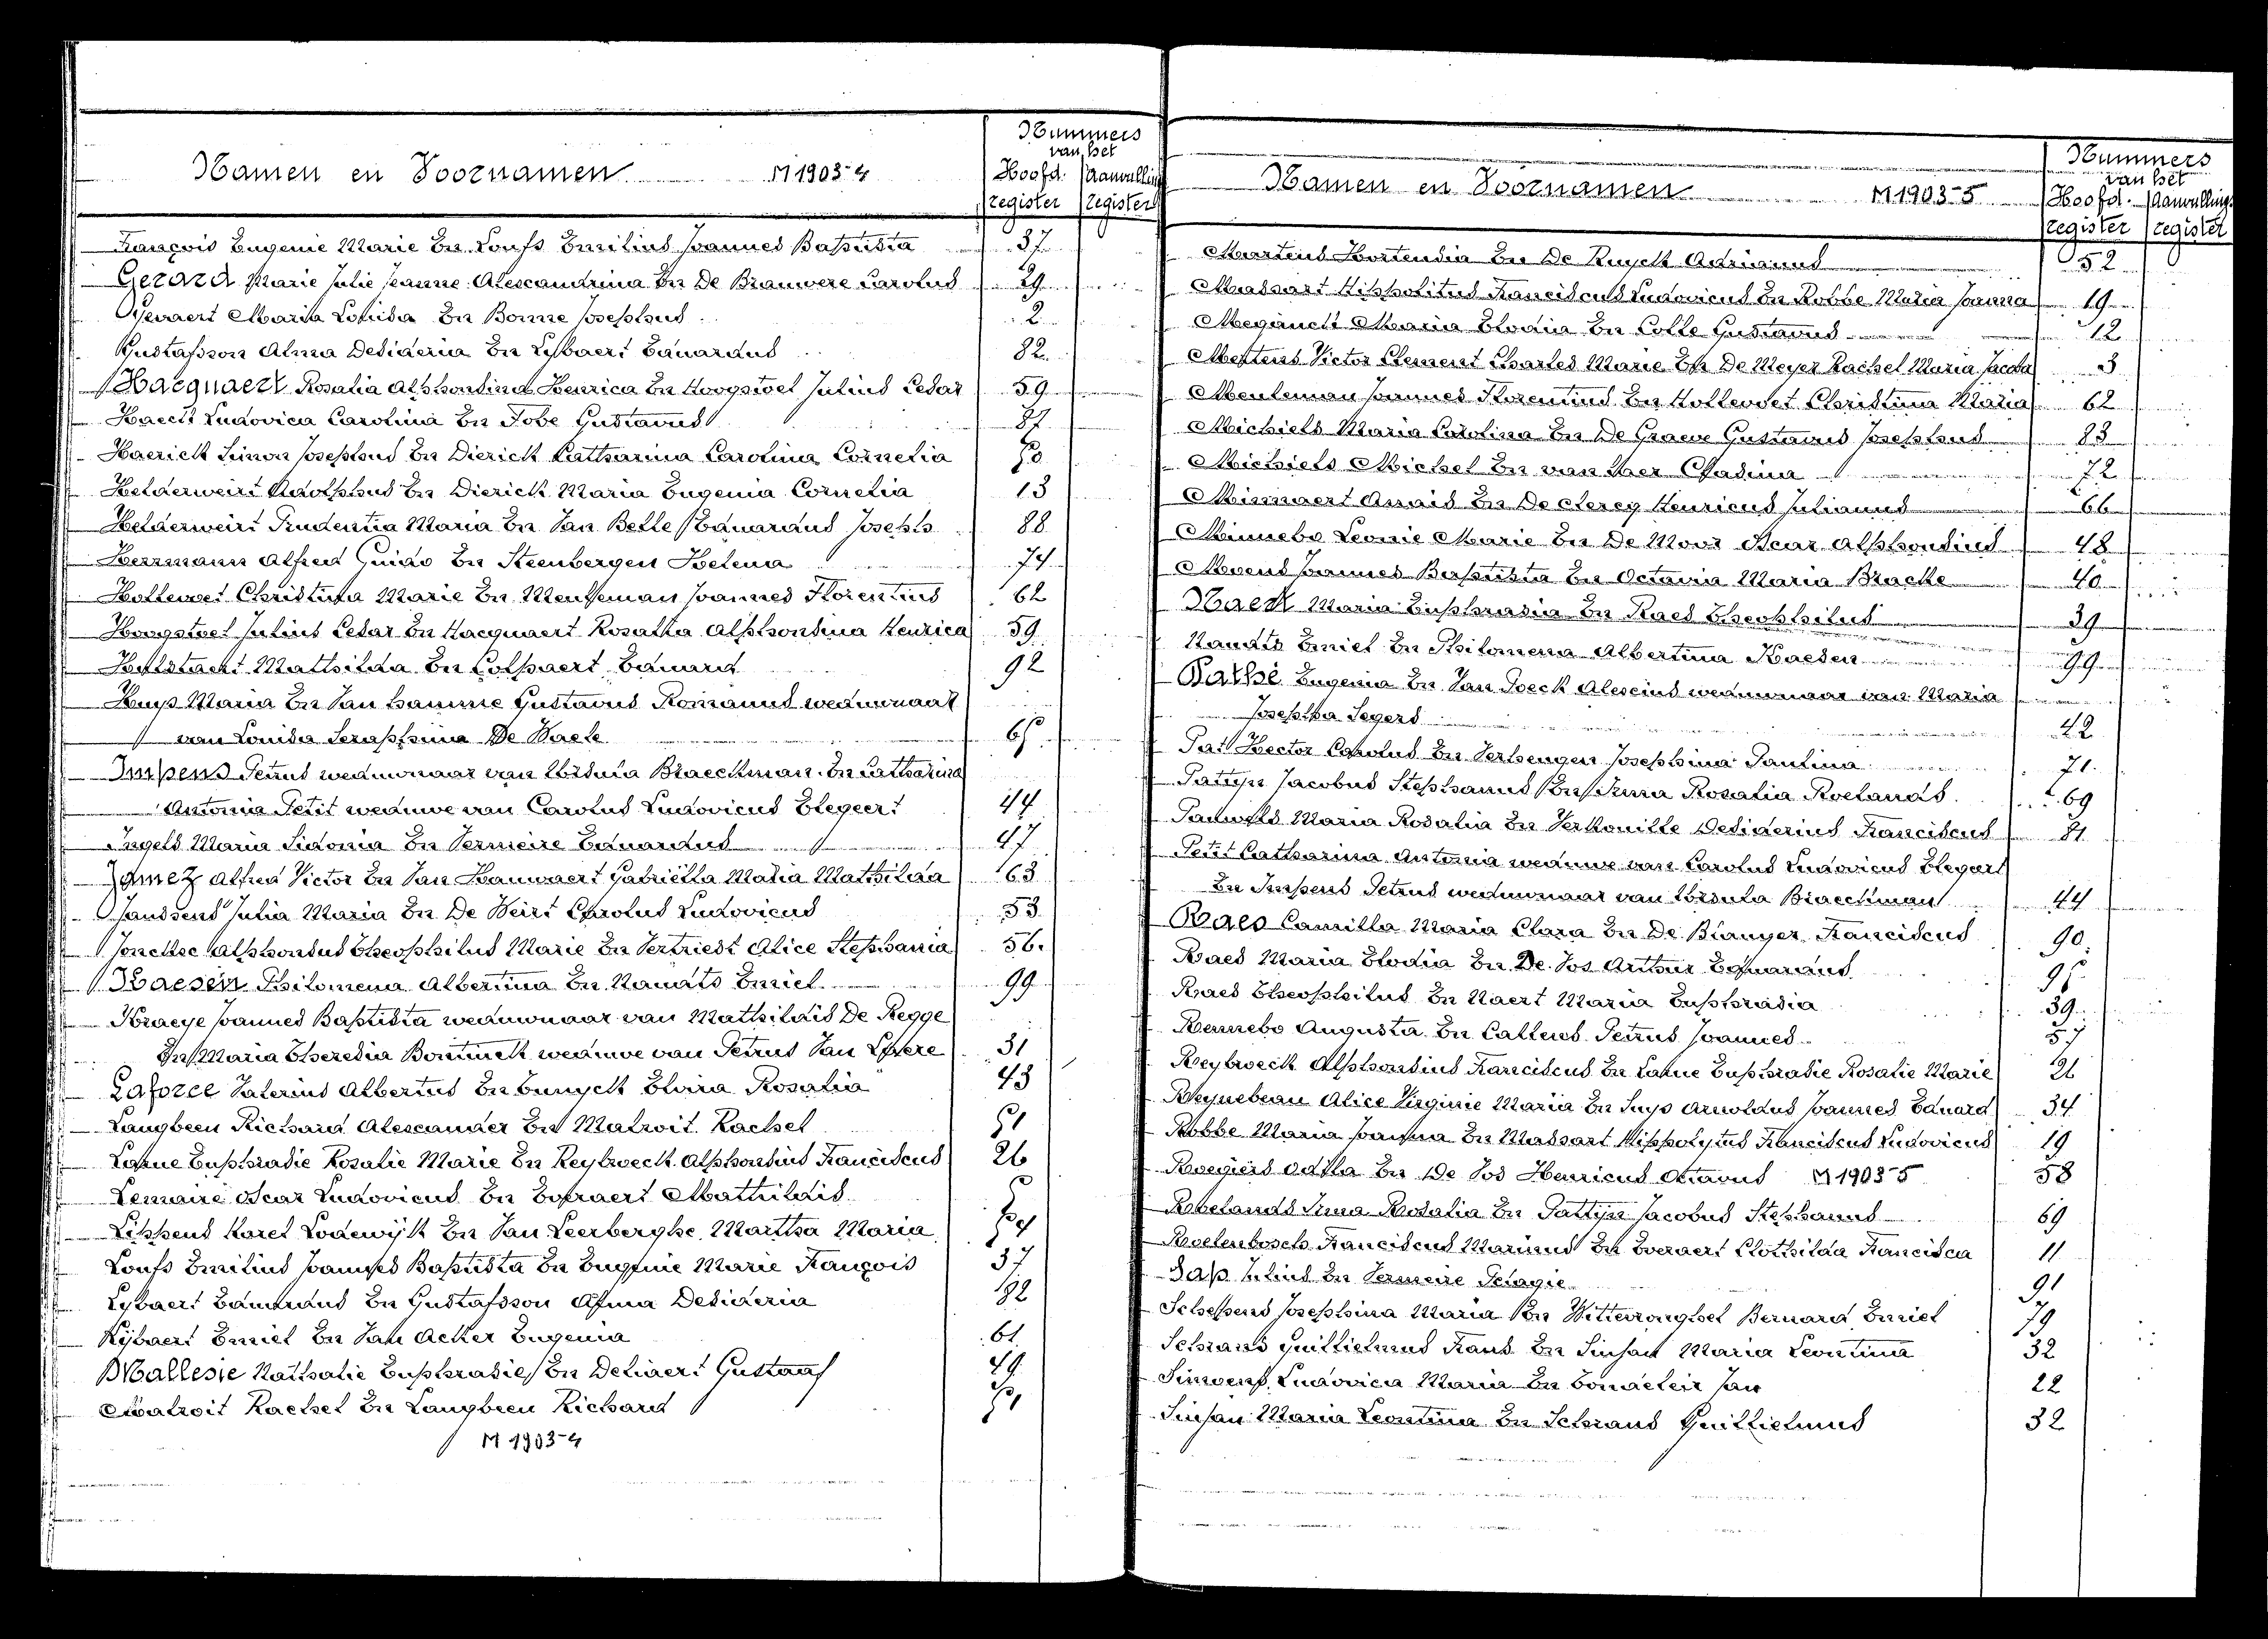 Namen en Voornamen M 1903-4
Nummers
van het
Hoofd. Aanvulling
register register
François Eugenie Marie En Loufs Emilius Joannes Baptista 37
Gerard Marie Julie Jeanne Alexandrina En De Brauwere Carolus 29
Gevaert Maria En Bonne Josephus 2
Gustafsson Alma Desideria En Lybaert Eduardus 82
Hacquaert Rosalia Alphonsina Henrica En Hoogstoel Julius Cesar 59
Haeck Ludovica Carolina En Tobe Gustavus 87
Haerick Simon Josephus En Dierick Catharina Carolina Cornelia
Helderweirt Adolphus En Dierick Maria Eugenia Cornelia 13
Helderweirt Prudentia Maria En Van Belle Eduardus Joseph 88
Herrmann Alfred Guido En Steenbergen Helena 74
Hollevoet Christina Marie En Meuleman Joannes Florentinus 62
Hoogstoel Julius Cesar En Hacquaert Rosalia Alphonsina Henrica 59
Hulstaert Mathilda En Colpaert Eduard 92
Huys Maria En Van hamme Gustavus Romanus weduwnaar
van Louisa Seraphina De Waele
Impens Petrus weduwnaar van Ursula Braeckman En Catharina
Antonia Petit weduwe van Carolus Ludovicus Elegeert 44
Ingels Maria Sidonia En Vermeire Eduardus 47
Jamez Alfred Victor En Van Hauwaert Gabriëlla Maria Mathilda 63
Janssens Julia Maria En De Weirt Carolus Ludovicus 53
Jonckhe Alphonsus Theophilus Marie En Vertriest Alice Stephania 56
Kaesen Philomena Albertina En Nauats Emiel 99
Kraeye Joannes Baptista weduwnaar van Mathildis De Regge
En Maria Theresia Bontinck weduwe van Petrus Van 31
Laforce Valerius Albertus En Bunyck Elvira Rosalia 43
Langbeen Richard Alexander En Malroit Rachel 51
Lahue Euphrasie Rosalie Marie En Reybroeck Alphonsius Franciscus 26
Lemaire Oscar Ludovicus En Everaert Mathildis
Lippens Karel Lodewijk En Van Leerberghe Martha Maria
Loufs Emilius Joannes Baptista En Eugenie Marie François 37
Lybaert Eduardus En Gustafsson Alma Desideria 82
Lijbaert Emiel En Van Acker Eugenia 61
Mallesie Nathalie Euphrasie En Delvaert Gustaaf 49
Malroit Rachel En Langbeen Richard 51
M 1903-4
Namen en Voornamen M 1903-5
Nummers
van het
Hoofd. Aanvullings
register register
Maertens Hortensia En De Ruyck Adrianus 52
Massart Hippolitus Franciscus Ludovicus En Robbe Maria Joanna 19
Meganck Maria Elodia En Colle Gustavus 12
Mertens Victor Clement Charles Marie En De Meyer Rachel Maria Jacoba 3
Meuleman Joannes Florentinus En Hollevoet Christina Maria 62
Michiels Maria Carolina En De Graeve Gustavus Josephus 83
Michiels Michel En van
72
Minnaert Anaïs En De clercq Henricus Julianus 66
Minnebo Leonie Marie En De Moor Oscar Alphonsius 48
Moens Joannes Baptista En Octavia Maria Bracke 40
Naert Maria Euphrasia En Raes Theophilus 39
Nauats Emiel En Philomena Albertina Kaesen 99
Pathé Eugenia En Van Poeck Alexius weduwnaar van Maria
Josephina Segers 42
Pat Hector Carolus En Verhengen Josephina Paulina 71
Pattyn Jacobus Stephanus En Irma Rosalia Roelands 69
Pauwels Maria Rosalia En Verkouille Desiderius Franciscus 81
Petit Catharina Antonia weduwe van Carolus Ludovicus Elegeert
En Impens Petrus weduwnaar van Ursula Braeckman 44
Raes Camilla Maria Clara En De Bruyer Franciscus 90
Raes Maria Elodia En De Vos Arthur Eduardus
Raes Theophilus En Naert Maria Euphrasia 39
Rennebo Augusta En Callens Petrus Joannes 57
Reybroeck Alphonsius Franciscus En Lahue Euphrasie Rosalie Marie 26
Reynebeau Alice Virginie Maria En Suys Arnoldus Joannes Eduard 34
Robbe Maria Joanna En Massart Hippolytus Franciscus Ludovicus 19
Roegiers Odilla En De Vos Henricus Octavus M 1903-5 58
Roelands Irma Rosalia En Pattyn Jacobus Stephanus 69
Roelenbosch Franciscus Marinus En Everaert Clothilda Francisca 11
Sap Julius En Vermeire Pelagie 91
Schepens Josephina Maria En Wittevrongel Bernard Emiel 79
Schrans Guillielmus Frans En Sinsau Maria Leontina 32
Simoens Ludovica Maria En Jan 22
Sinsau Maria Leontina En Schrans Guillielmus 32